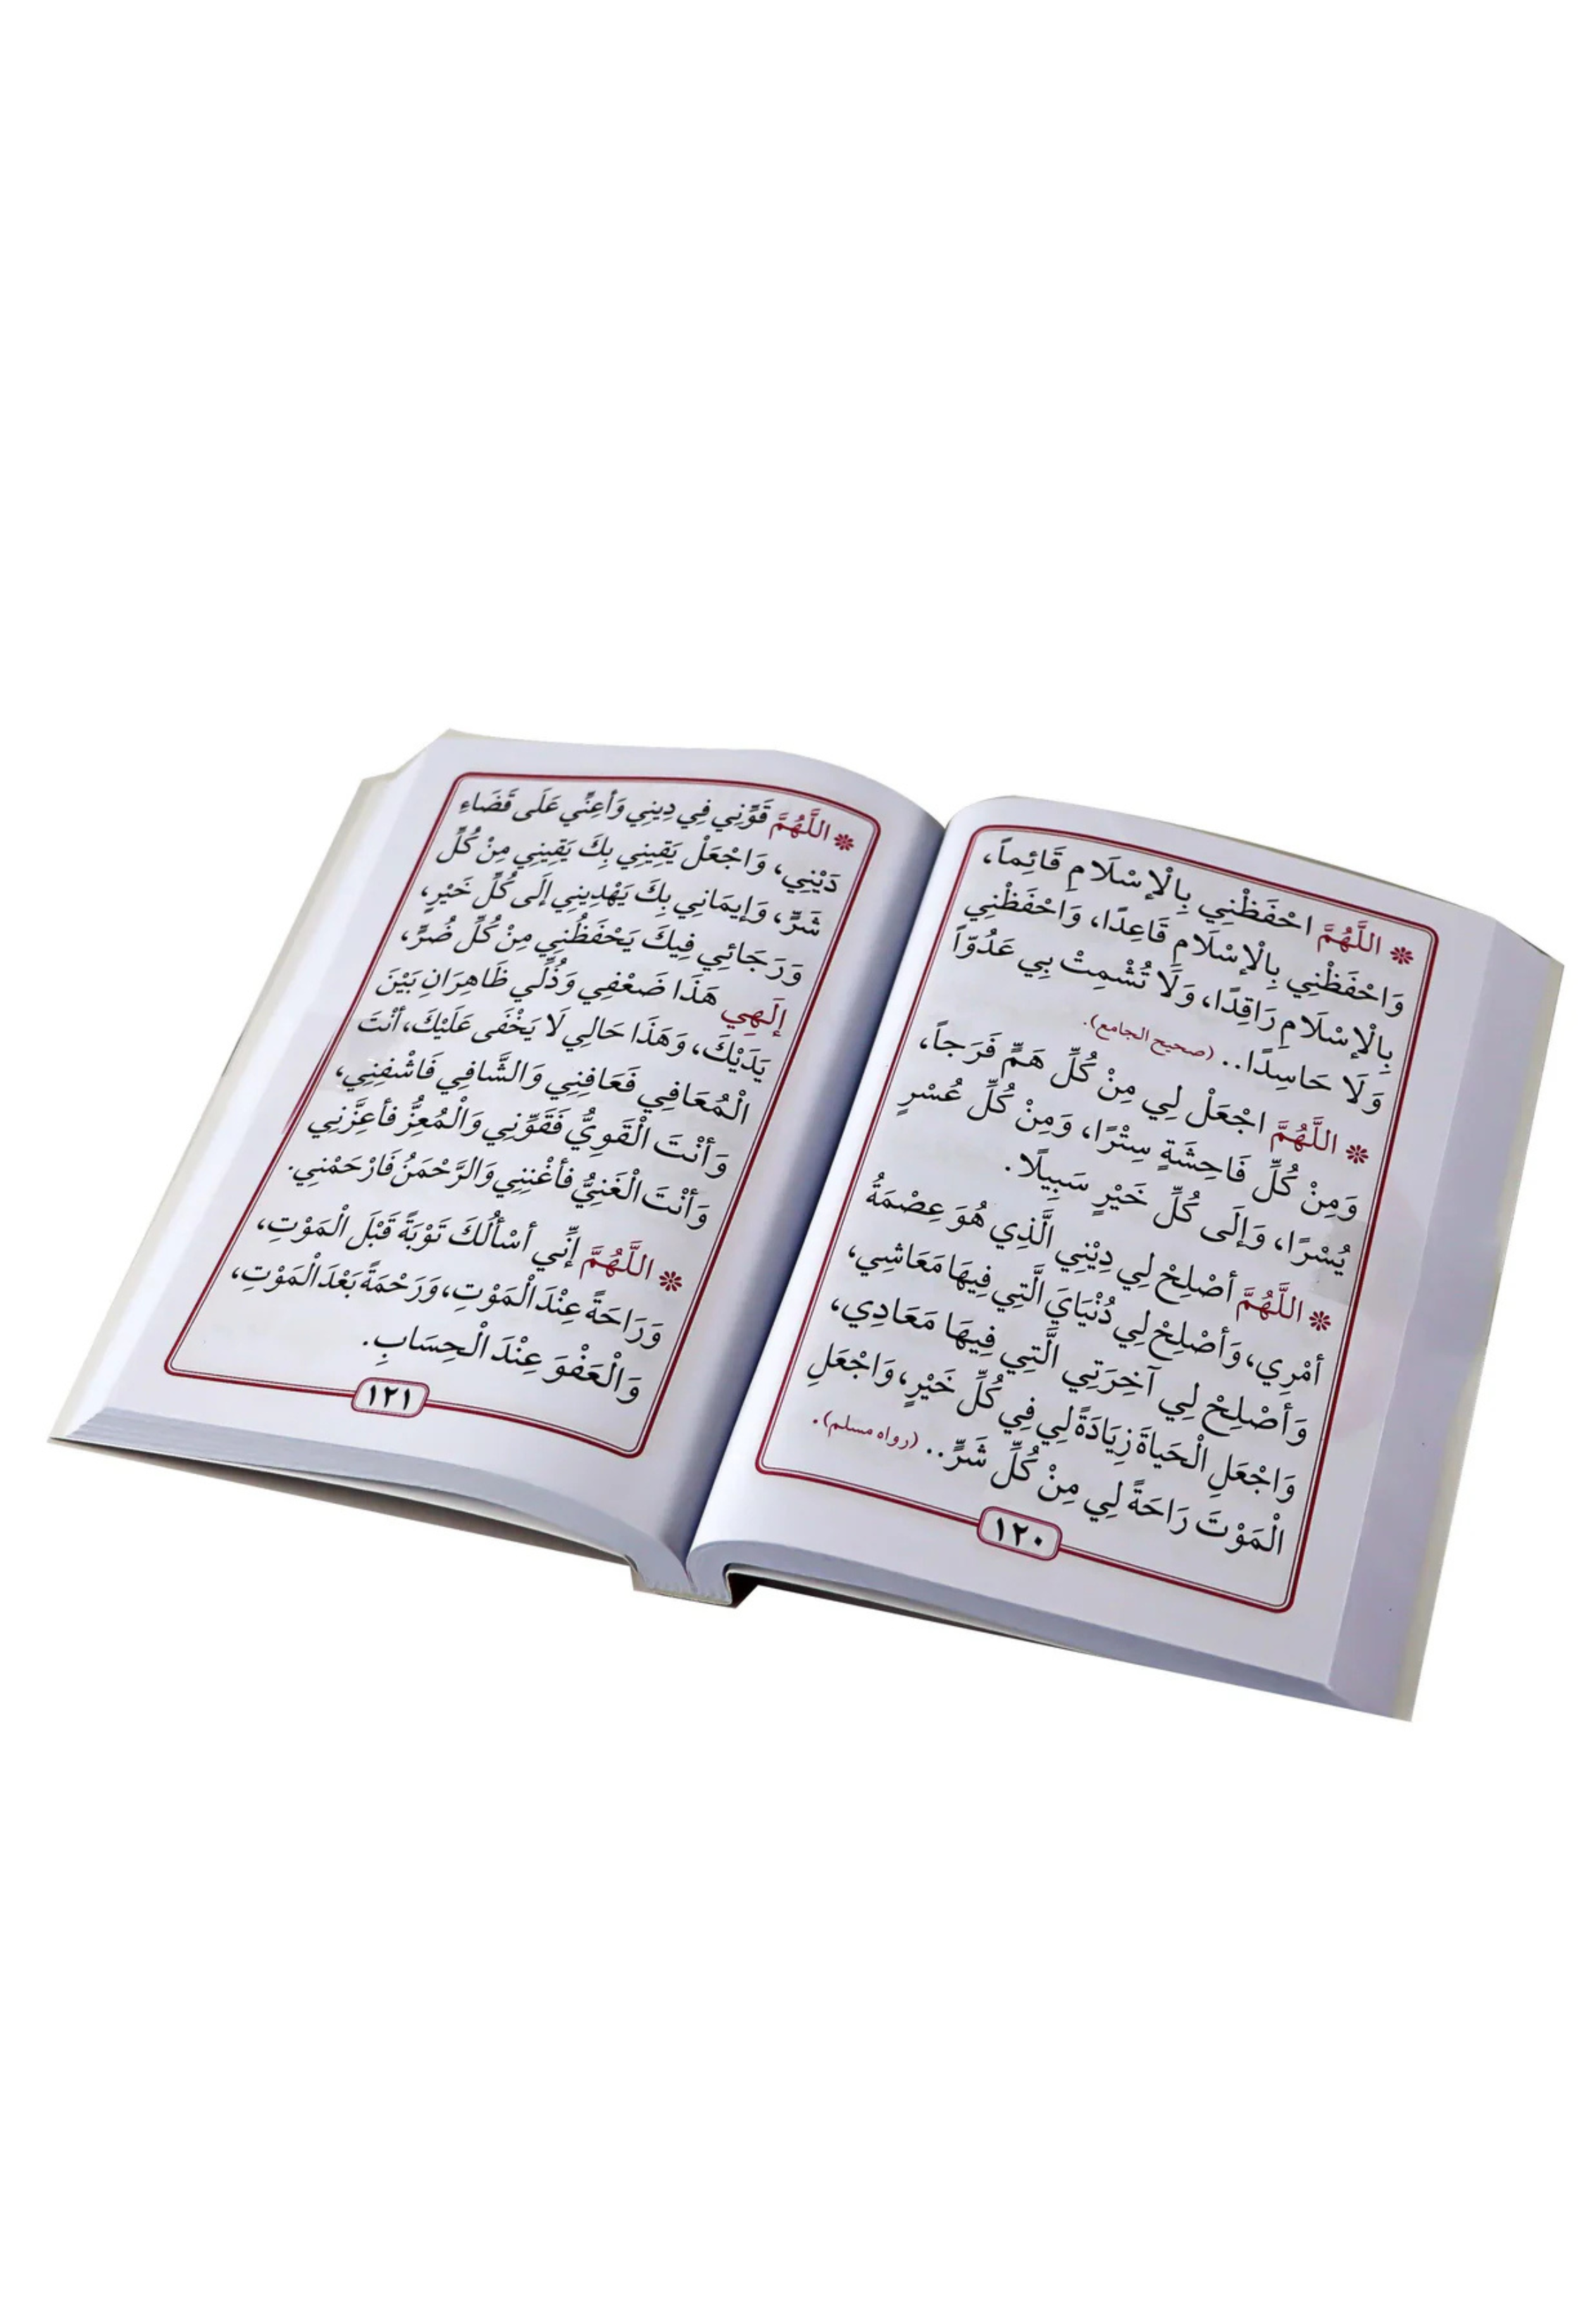 ❊ اللَّهُمَّ احْفَظْنِي بِالْإِسْلَامِ قَائِماً،
وَاحْفَظْنِي بِالْإِسْلَامِ قَاعِدًا، وَاحْفَظْنِي
بِالْإِسْلَامِ رَاقِدًا، وَلَا تُشْمِتْ بِي عَدُوّاً
وَلَا حَاسِدًا.. (صحيح الجامع).
❊ اللَّهُمَّ اجْعَلْ لِي مِنْ كُلِّ هَمٍّ فَرَجاً،
وَمِنْ كُلِّ فَاحِشَةٍ سِتْرًا، وَمِنْ كُلِّ عُسْرٍ
يُسْرًا، وَإِلَى كُلِّ خَيْرٍ سَبِيلًا.
❊ اللَّهُمَّ أصْلِحْ لِي دِيْنِي الَّذِي هُوَ عِصْمَةُ
أمْرِي، وَأصْلِحْ لِي دُنْيَايَ الَّتِي فِيهَا مَعَاشِي،
وَأصْلِحْ لِي آخِرَتِي الَّتِي فِيهَا مَعَادِي،
وَاجْعَلِ الْحَيَاةَ زِيَادَةً لِي فِي كُلِّ خَيْرٍ، وَاجْعَلِ
الْمَوْتَ رَاحَةً لِي مِنْ كُلِّ شَرٍّ.. (رواه مسلم).
١٢٠
❊ اللَّهُمَّ قَوِّنِي فِي دِينِي وَأعِنِّي عَلَى قَضَاءِ
دَيْنِي، وَاجْعَلْ يَقِينِي بِكَ يَقِينِي مِنْ كُلِّ
شَرٍّ، وَإيمَانِي بِكَ يَهْدِينِي إلَى كُلِّ خَيْرٍ،
وَرَجَائِي فِيكَ يَحْفَظُنِي مِنْ كُلِّ ضُرٍّ،
إلَهِي هَذَا ضَعْفِي وَذُلِّي ظَاهِرَانِ بَيْنَ
يَدَيْكَ، وَهَذَا حَالِي لَا يَخْفَى عَلَيْكَ، أنْتَ
الْمُعَافِي فَعَافِنِي وَالشَّافِي فَاشْفِنِي،
وَأنْتَ الْقَوِيُّ فَقَوِّنِي وَالْمُعِزُّ فأعِزَّنِي
وَأنْتَ الْغَنِيُّ فأغْنِنِي وَالرَّحْمَنُ فَارْحَمْنِي.
❊ اللَّهُمَّ إنِّي أسْألُكَ تَوْبَةً قَبْلَ الْمَوْتِ،
وَرَاحَةً عِنْدَ الْمَوْتِ، وَرَحْمَةً بَعْدَ الْمَوْتِ،
وَالْعَفْوَ عِنْدَ الْحِسَابِ.
١٢١